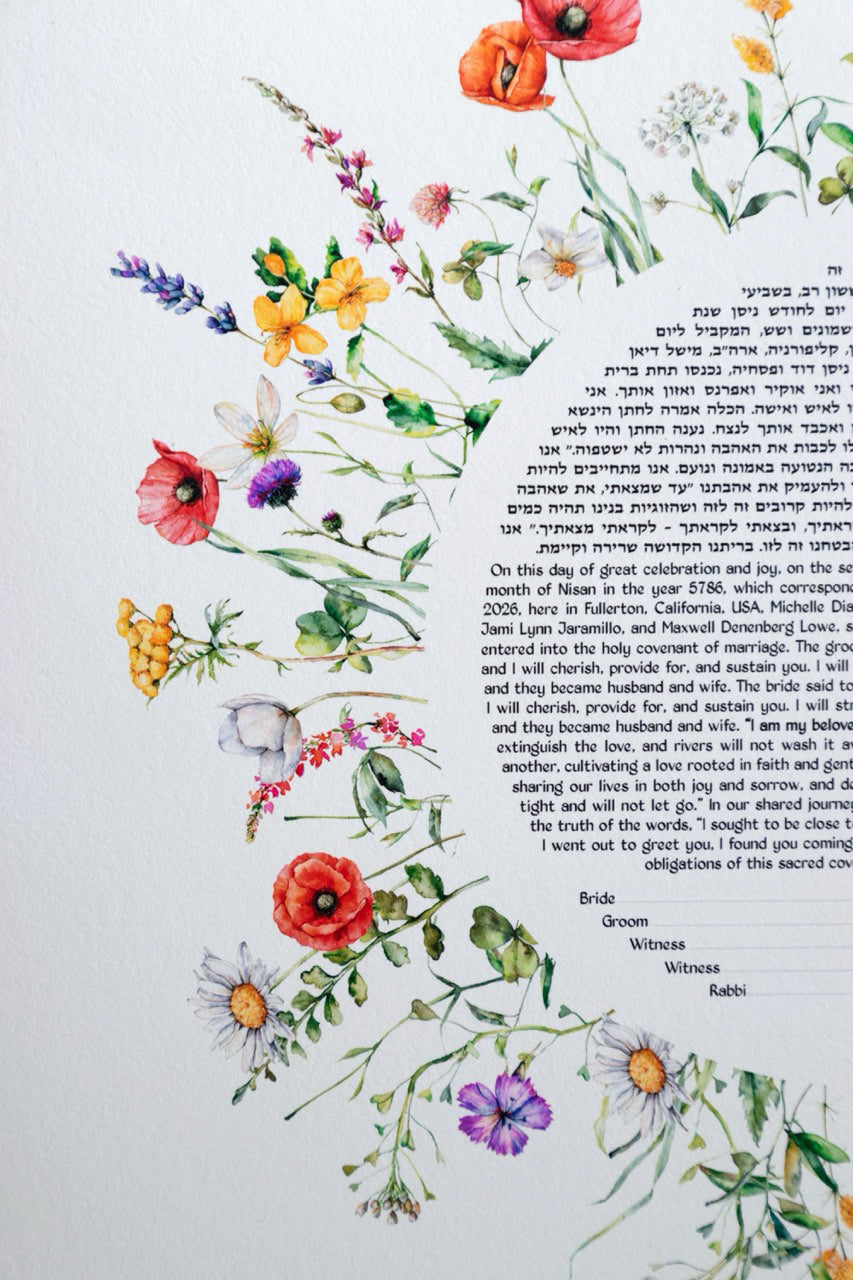 זה
ששון רב, בשביעי
יום לחודש ניסן שנת
שמונים ושש, המקביל ליום
קליפורניה, ארה״ב, מישל דיאן
ניסן דוד ופסחיה, נכנסו תחת ברית
ואני אוקיר ואפרנס ואזון אותך. אני
לאיש ואישה. הכלה אמרה לחתן הינשא
ואכבד אותך לנצח. נענה החתן והיו לאיש
לו לכבות את האהבה ונהרות לא ישטפוה.״ אנו
הנטועה באמונה ונועם. אנו מתחייבים להיות
ולהעמיק את אהבתנו ״עד שמצאתי, את שאהבה
להיות קרובים זה לזה ושהזוגיות בנינו תהיה כמים
קראתיך, ובצאתי לקראתך - לקראתי מצאתיך.״ אנו
הבטחנו זה לזו. בריתנו הקדושה שרירה וקיימת.
On this day of great celebration and joy, on the se
month of Nisan in the year 5786, which correspon
2026, here in Fullerton, California, USA, Michelle Dia
Jami Lynn Jaramillo, and Maxwell Denenberg Lowe, s
entered into the holy covenant of marriage. The groo
and I will cherish, provide for, and sustain you. I will
and they became husband and wife. The bride said to
I will cherish, provide for, and sustain you. I will str
and they became husband and wife. "I am my belove
extinguish the love, and rivers will not wash it a
another, cultivating a love rooted in faith and gent
sharing our lives in both joy and sorrow, and de
tight and will not let go." In our shared journey
the truth of the words, "I sought to be close t
I went out to greet you, I found you coming
obligations of this sacred cov
Bride
Groom
Witness
Witness
Rabbi